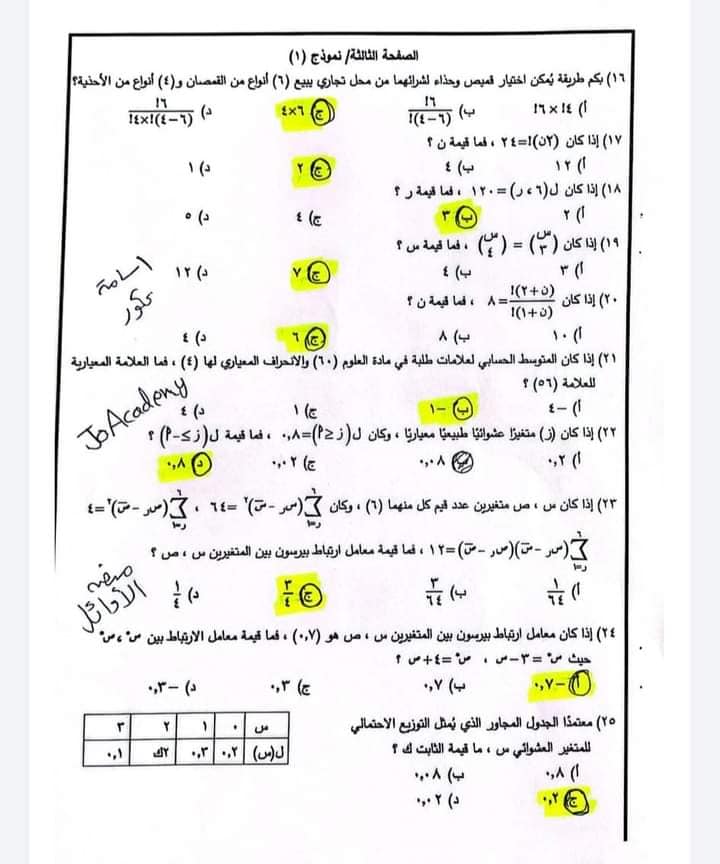 الصفحة الثالثة/ نموذج (١)
١٦) بكم طريقة يُمكن اختيار قميص وحذاء لشرائهما من محل تجاري يبيع (٦) أنواع من القمصان و(٤) أنواع من الأحذية؟
أ) ٤! × ٦! ب) ٦! / (٦-٤)! ج) ٦×٤ د) ٦! / (٦-٤)!×٤!
١٧) إذا كان (٢ن)!=٢٤ ، فما قيمة ن ؟
أ) ١٢ ب) ٤ ج) ٢ د) ١
١٨) إذا كان ل(٦،ر)=١٢٠ ، فما قيمة ر ؟
أ) ٢ ب) ٣ ج) ٤ د) ٥
١٩) إذا كان (س ٣) = (س ٤) ، فما قيمة س ؟
أ) ٣ ب) ٤ ج) ٧ د) ١٢
اسامة
عكور
٢٠) إذا كان (ن+٢)! / (ن+١)! = ٨ ، فما قيمة ن ؟
أ) ١٠ ب) ٨ ج) ٦ د) ٤
٢١) إذا كان المتوسط الحسابي لعلامات طلبة في مادة العلوم (٦٠) والانحراف المعياري لها (٤) ، فما العلامة المعيارية
للعلامة (٥٦) ؟
أ) -٤ ب) -١ ج) ١ د) ٤
JoAcademy
٢٢) إذا كان (ز) متغيرًا عشوائيًا طبيعيًا معياريًا ، وكان ل(ز≤أ)=٠,٨ ، فما قيمة ل(ز≥-أ) ؟
أ) ٠,٢ ٠,٠٨ ج) ٠,٠٢ د) ٠,٨
٢٣) إذا كان س ، ص متغيرين عدد قيم كل منهما (٦) ، وكان ∑(سر - س̄)٢ =٦٤ ، ∑(صر - ص̄)٢=٤
∑(سر - س̄)(صر - ص̄)=١٢ ، فما قيمة معامل ارتباط بيرسون بين المتغيرين س ، ص ؟
أ) ١/٦٤ ب) ٣/٦٤ ج) ٣/٤ د) ١/٤
منصة
الأوائل
٢٤) إذا كان معامل ارتباط بيرسون بين المتغيرين س ، ص هو (٠,٧) ، فما قيمة معامل الارتباط بين س* ، ص*
حيث س* =٣-س ، ص* =٤+ص ؟
أ) -٠,٧ ب) ٠,٧ ج) ٠,٣ د) -٠,٣
٢٥) معتمدًا الجدول المجاور الذي يُمثل التوزيع الاحتمالي
للمتغير العشوائي س ، ما قيمة الثابت ك ؟
أ) ٠,٨ ب) ٠,٠٨
ج) ٠,٢ د) ٠,٠٢
س ٠ ١ ٢ ٣
ل(س) ٠,٢ ٠,٣ ٢ك ٠,١